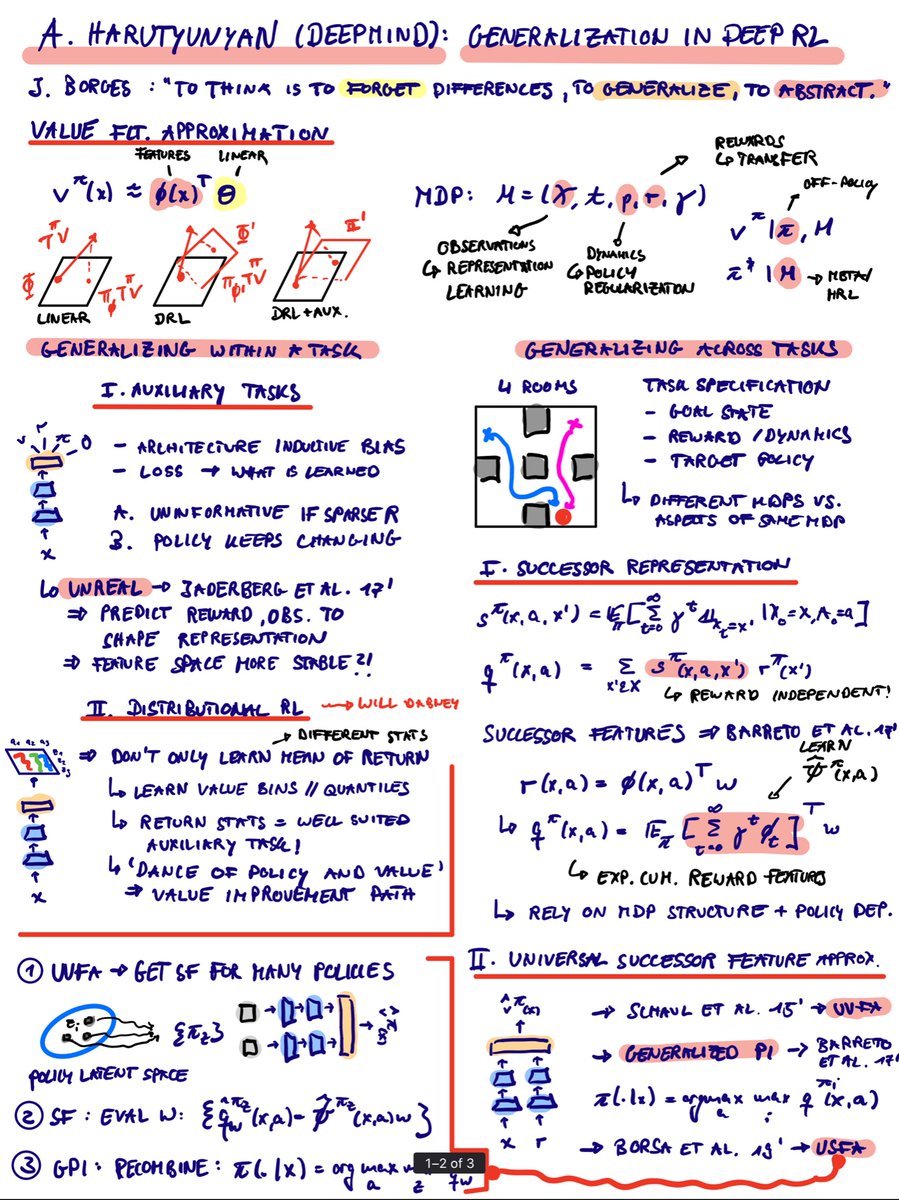 A. HARUTYUNYAN (DEEPMIND): GENERALIZATION IN DEEP RL
J. BORGES : "TO THINK IS TO FORGET DIFFERENCES, TO GENERALIZE, TO ABSTRACT."
VALUE FCT. APPROXIMATION
FEATURES LINEAR
v^π(x) ≈ φ(x)^T Θ
Φ T^πV Π_Φ T^πV
Φ' Π_Φ' T^πV
Φ'
LINEAR DRL DRL + AUX.
REWARDS
↳ TRANSFER
MDP: M = (X, t, p, r, γ)
OBSERVATIONS
↳ REPRESENTATION
LEARNING
DYNAMICS
↳ POLICY
REGULARIZATION
OFF-POLICY
v^π | π, M
π* | M → META/
HRL
GENERALIZING WITHIN A TASK
I. AUXILIARY TASKS
v r π O
x
- ARCHITECTURE INDUCTIVE BIAS
- LOSS → WHAT IS LEARNED
A. UNINFORMATIVE IF SPARSE R
B. POLICY KEEPS CHANGING
↳ UNREAL → JADERBERG ET AL. 17'
⇒ PREDICT REWARD, OBS. TO
SHAPE REPRESENTATION
⇒ FEATURE SPACE MORE STABLE?!
II. DISTRIBUTIONAL RL → WILL DABNEY
→ DIFFERENT STATS
a₁ a₂ a₃
⇒ DON'T ONLY LEARN MEAN OF RETURN
↳ LEARN VALUE BINS // QUANTILES
↳ RETURN STATS = WELL SUITED
AUXILIARY TASK!
↳ 'DANCE OF POLICY AND VALUE'
⇒ VALUE IMPROVEMENT PATH
x
GENERALIZING ACROSS TASKS
4 ROOMS
TASK SPECIFICATION
- GOAL STATE
- REWARD / DYNAMICS
- TARGET POLICY
↳ DIFFERENT MDPS VS.
ASPECTS OF SAME MDP
I. SUCCESSOR REPRESENTATION
s^π(x, a, x') = E_π[∑_{t=0}^∞ γ^t 1_{x_t=x'} | X₀=x, A₀=a]
q^π(x,a) = ∑_{x'∈X} s^π(x,a,x') r^π(x')
↳ REWARD INDEPENDENT!
SUCCESSOR FEATURES ⇒ BARRETO ET AL. 17'
LEARN
ψ̂^π(x,a)
r(x,a) = φ(x,a)^T w
↳ q^π(x,a) = E_π[∑_{t=0}^∞ γ^t φ_t]^T w
↳ EXP. CUM. REWARD FEATURES
↳ RELY ON MDP STRUCTURE + POLICY DEP.
II. UNIVERSAL SUCCESSOR FEATURE APPROX.
v̂^π(x)
x r
→ SCHAUL ET AL. 15' → UVFA
→ GENERALIZED PI → BARRETO
ET AL. 17'
π(·|x) = argmax_a max_i q^{π_i}(x,a)
→ BORSA ET AL. 19' → USFA
① UVFA → GET SF FOR MANY POLICIES
{π_z}
POLICY LATENT SPACE
② SF : EVAL W: {q̂_w^{π_z}(x,a) = ψ̂^{π_z}(x,a)w}
③ GPI: RECOMBINE: π(.|x) = arg max_a
1–2 of 3